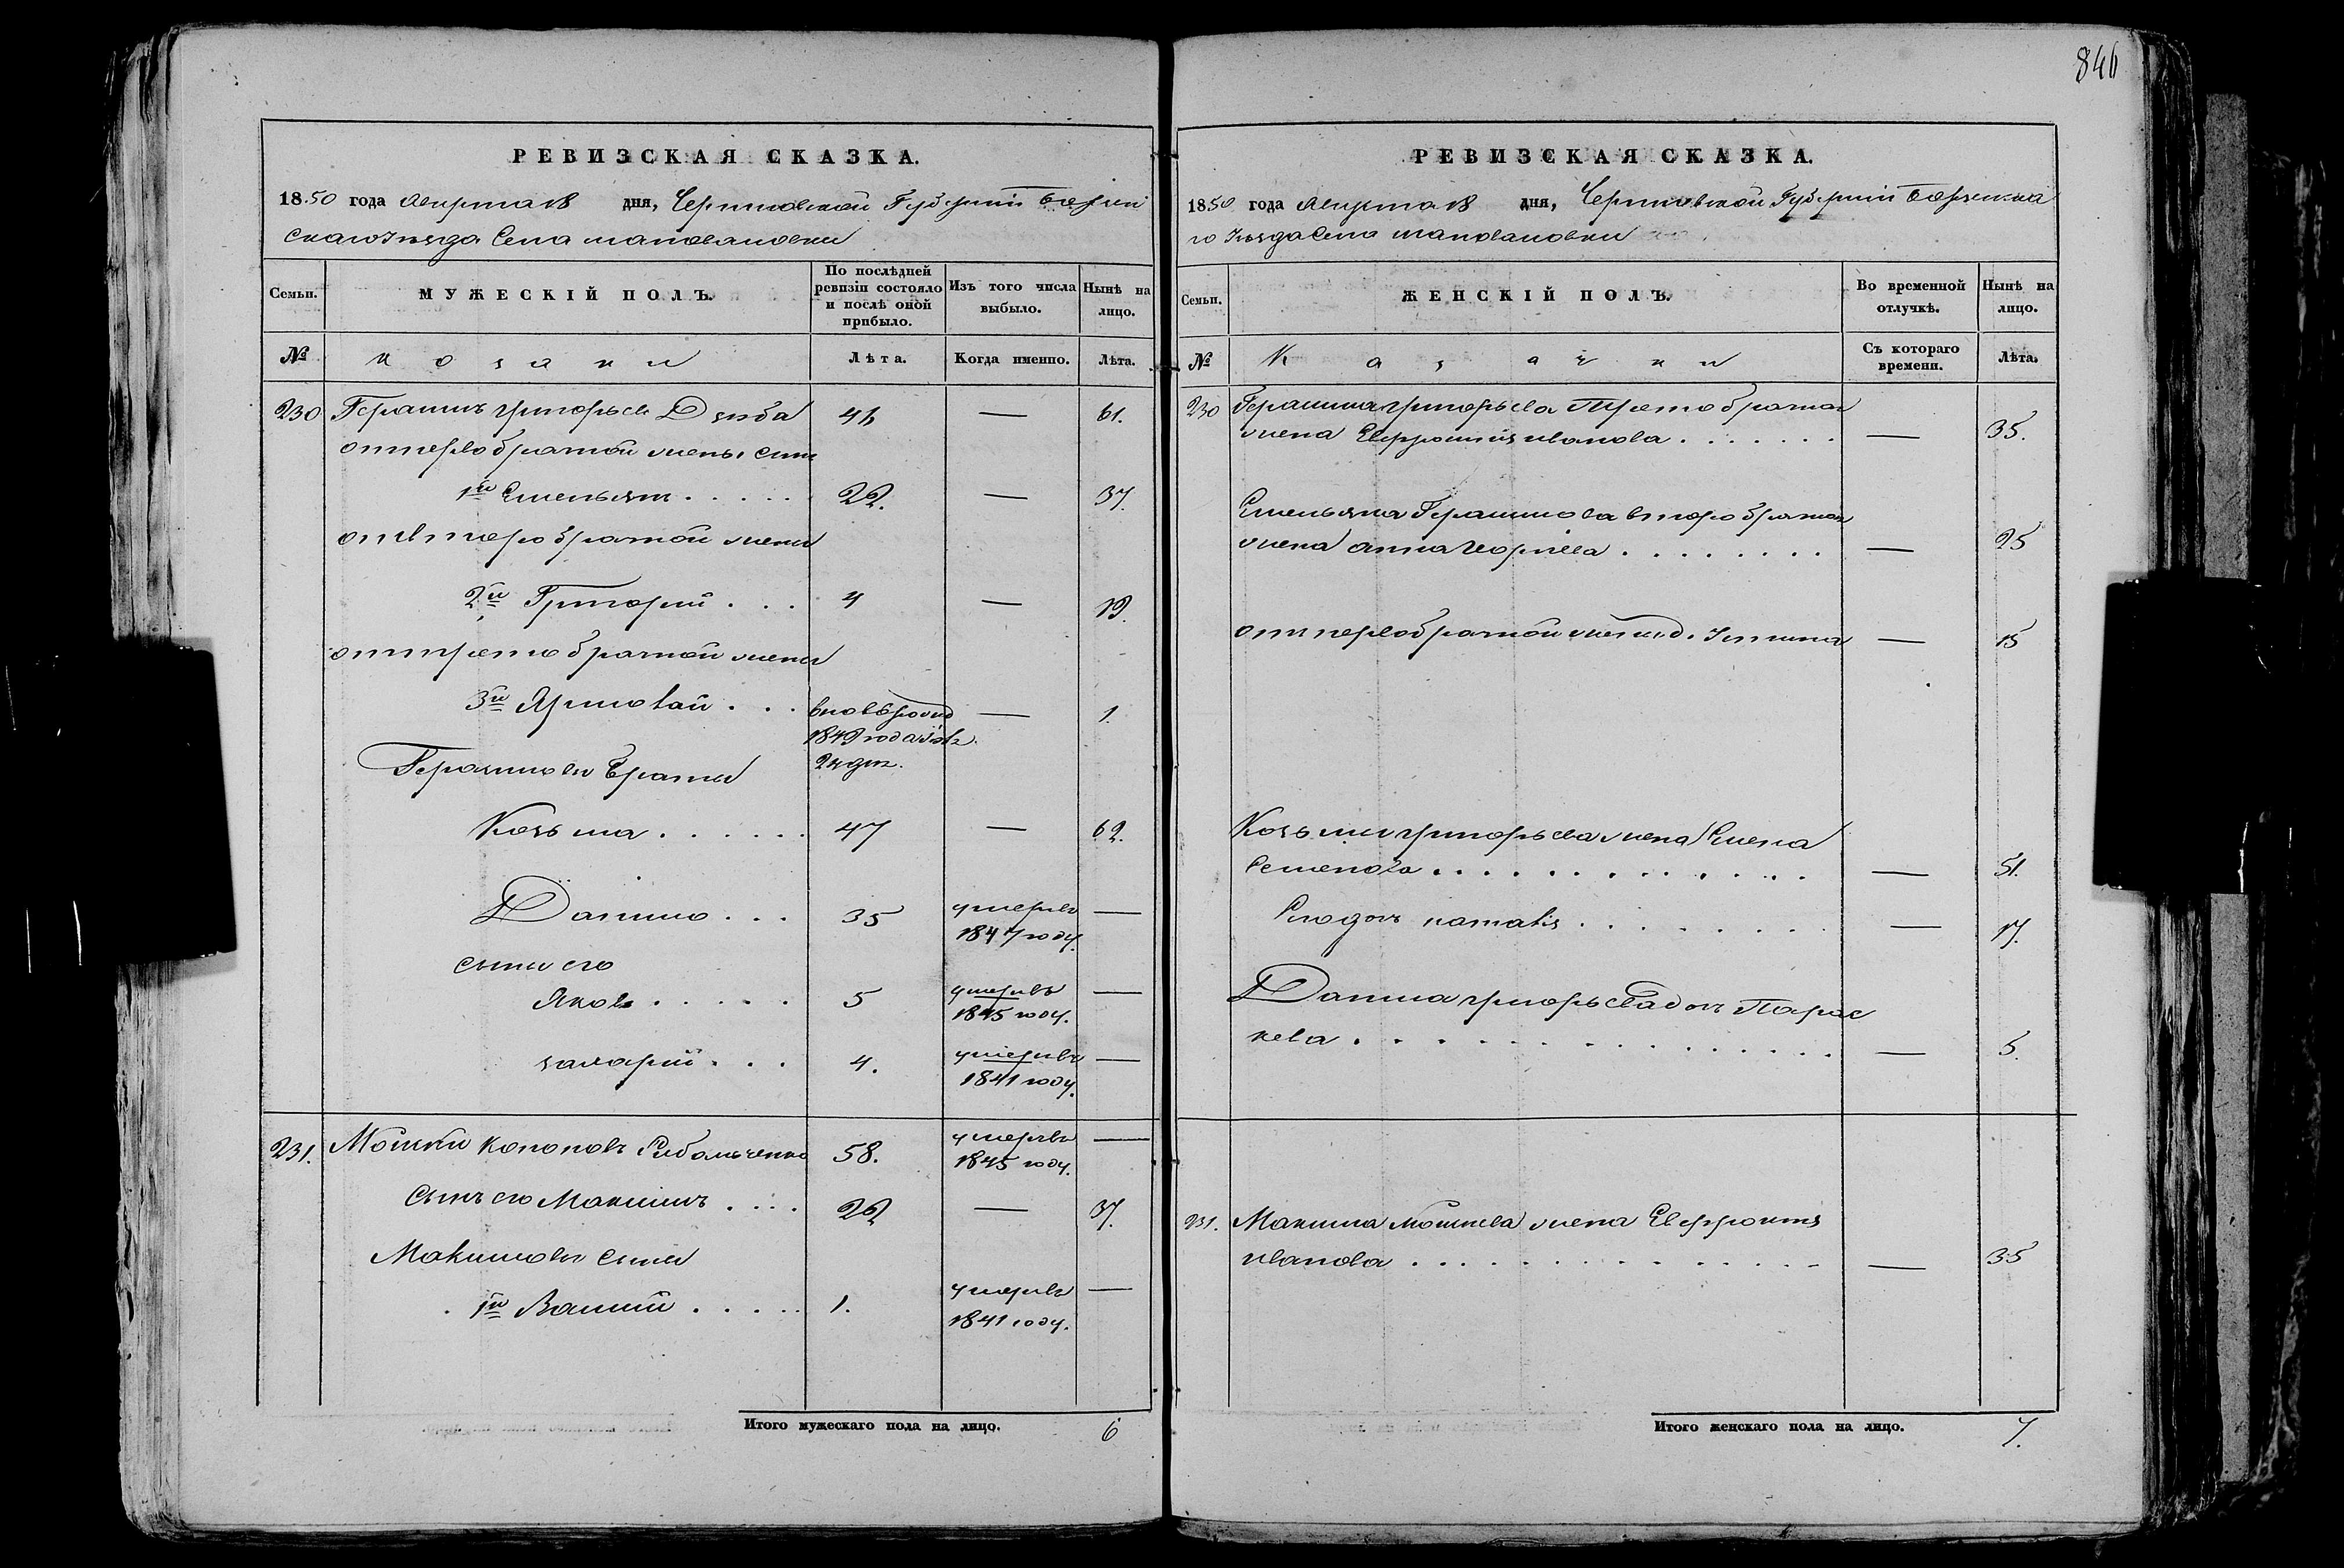 846
РЕВИЗСКАЯ СКАЗКА.
1850 года Августа 18 дня, Черниговской Губернии Борзен
скаго Уезда Села шаповаловки
Семьи.
МУЖЕСКІЙ ПОЛЪ.
По послѣдней ревизіи состояло и послѣ оной прибыло.
Изъ того числа выбыло.
Нынѣ на лицо.
№
козаки
Лѣта.
Когда именно.
Лѣта.
230 Герасимъ григорьевъ 46 — 61.
от первобрачной жены сын
1й Емельян 22. — 37.
от второбрачной жены
2й Григорий 4 — 19.
от третобрачной жены
3й вновь рожд — 1.
1849 года
Герасимовы Братья
Козьма 47 — 62.
Данило 35 умерь —
1847 году.
сыны его
Яковъ 5 умеръ —
1845 году.
захарий 4. умеръ —
1841 году.
231. Мойсей кононовъ 58. умеръ —
1845 году.
Сынъ его Максимъ 22 — 37.
Максимовы сыны
1й 1. умеръ —
1841 году.
Итого мужескаго пола на лицо. 6
РЕВИЗСКАЯ СКАЗКА.
1850 года Августа 18 дня, Черниговской Губернии Борзенска
го Уезда Села шаповаловки
Семьи.
ЖЕНСКІЙ ПОЛЪ.
Во временной отлучкѣ.
Нынѣ на лицо.
№
Казачки
Съ котораго времени.
Лѣта.
230 Герасима григорьева Третобрачная
жена Евфросиния иванова — 35.
Емельяна Герасимова второбрачная
жена анна — 25
от первобрачной жены д. Устина — 15
Козьмы григорьева жена Елена
Семенова — 51.
Его дочь наталия — 17.
Данила григорьева дочь Парас
кева — 5.
231. Максима Мойсеева жена Евфросиния
иванова — 35
Итого женскаго пола на лицо. 7.